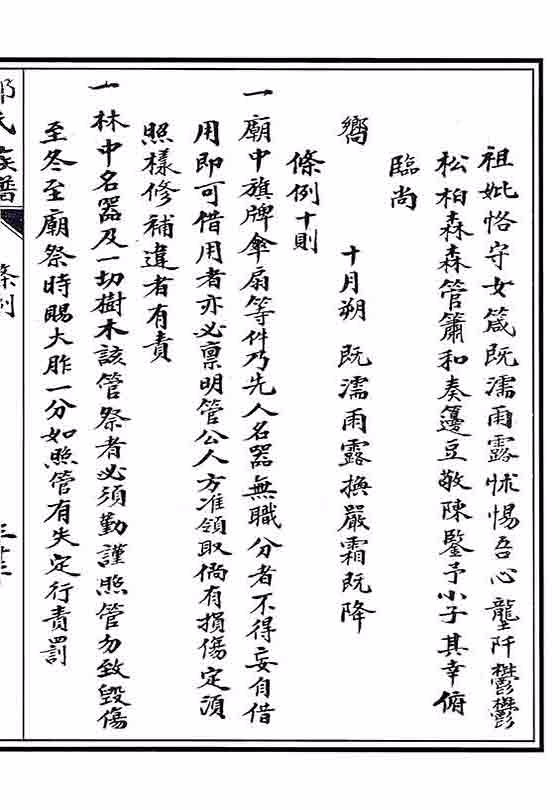 祖妣恪守女箴既濡雨露怵惕吾心壟阡鬱鬱
松柏森森管簫和奏籩豆敬陳鑒予小子其幸俯
臨尚
嚮
十月朔　既濡雨露撫嚴霜既降
條例十則
一廟中旗牌傘扇等件乃先人名器無職分者不得妄自借
用即可借用者亦必禀明管公人方准領取倘有損傷定須
照樣修補違者有責
一林中名器及一切樹木該管祭者必須勤謹照管勿致毀傷
至冬至廟祭時賜大胙一分如照管有失定行責罰
氏族譜
條例